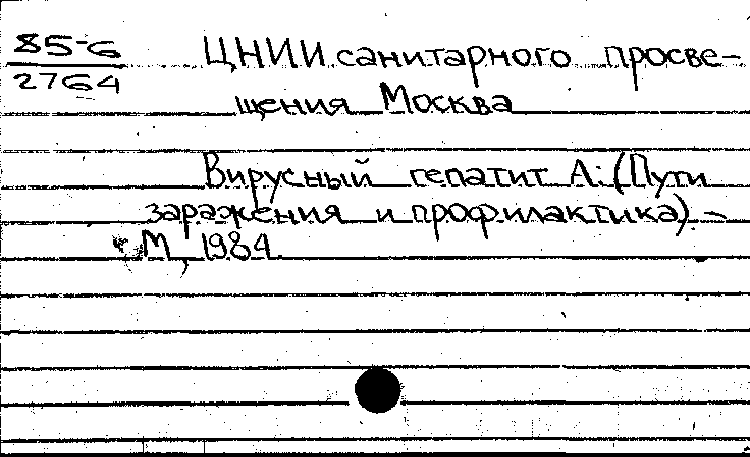 85-6
2764
ЦНИИ санитарного просве-
щения Москва
Вирусный гепатит А: (Пути
заражения и профилактика) -
М, 1984.